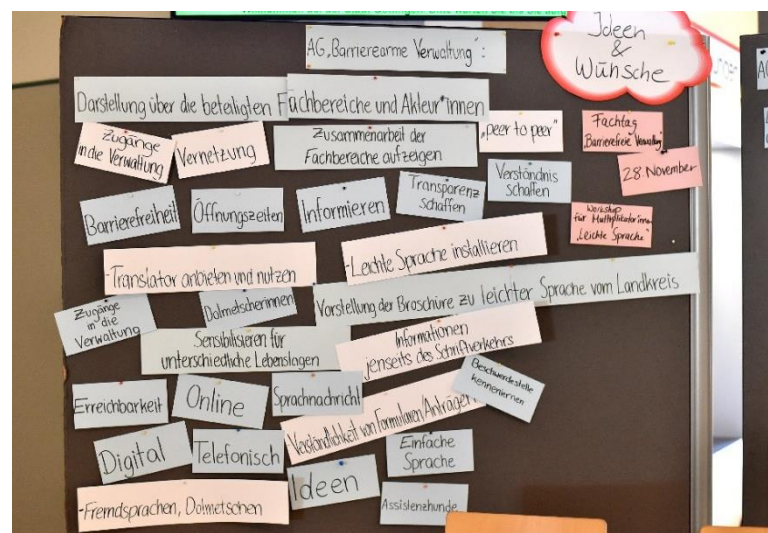 AG „Barrierearme Verwaltung“:
Ideen
&
Wünsche
Darstellung über die beteiligten Fachbereiche und Akteur*innen
Zugänge
in die Verwaltung
Vernetzung
Zusammenarbeit der
Fachbereiche aufzeigen
„peer to peer“
Fachtag
„Barrierefreie Verwaltung“
28. November
Barrierefreiheit
Öffnungszeiten
Informieren
Transparenz
schaffen
Verständnis
schaffen
Workshop
für Multiplikatorinnen
„Leichte Sprache“
-Translator anbieten und nutzen
-Leichte Sprache installieren
Zugänge
in die
Verwaltung
Dolmetscherinnen
Vorstellung der Broschüre zu leichter Sprache vom Landkreis
Sensibilisieren für
unterschiedliche Lebenslagen
Informationen
jenseits des Schriftverkehrs
Beschwerdestelle
kennenlernen
Erreichbarkeit
Online
Sprachnachricht
-Verständlichkeit von Formularen/Anträgen
Digital
Telefonisch
Einfache
Sprache
-Fremdsprachen, Dolmetschen
Ideen
Assistenzhunde